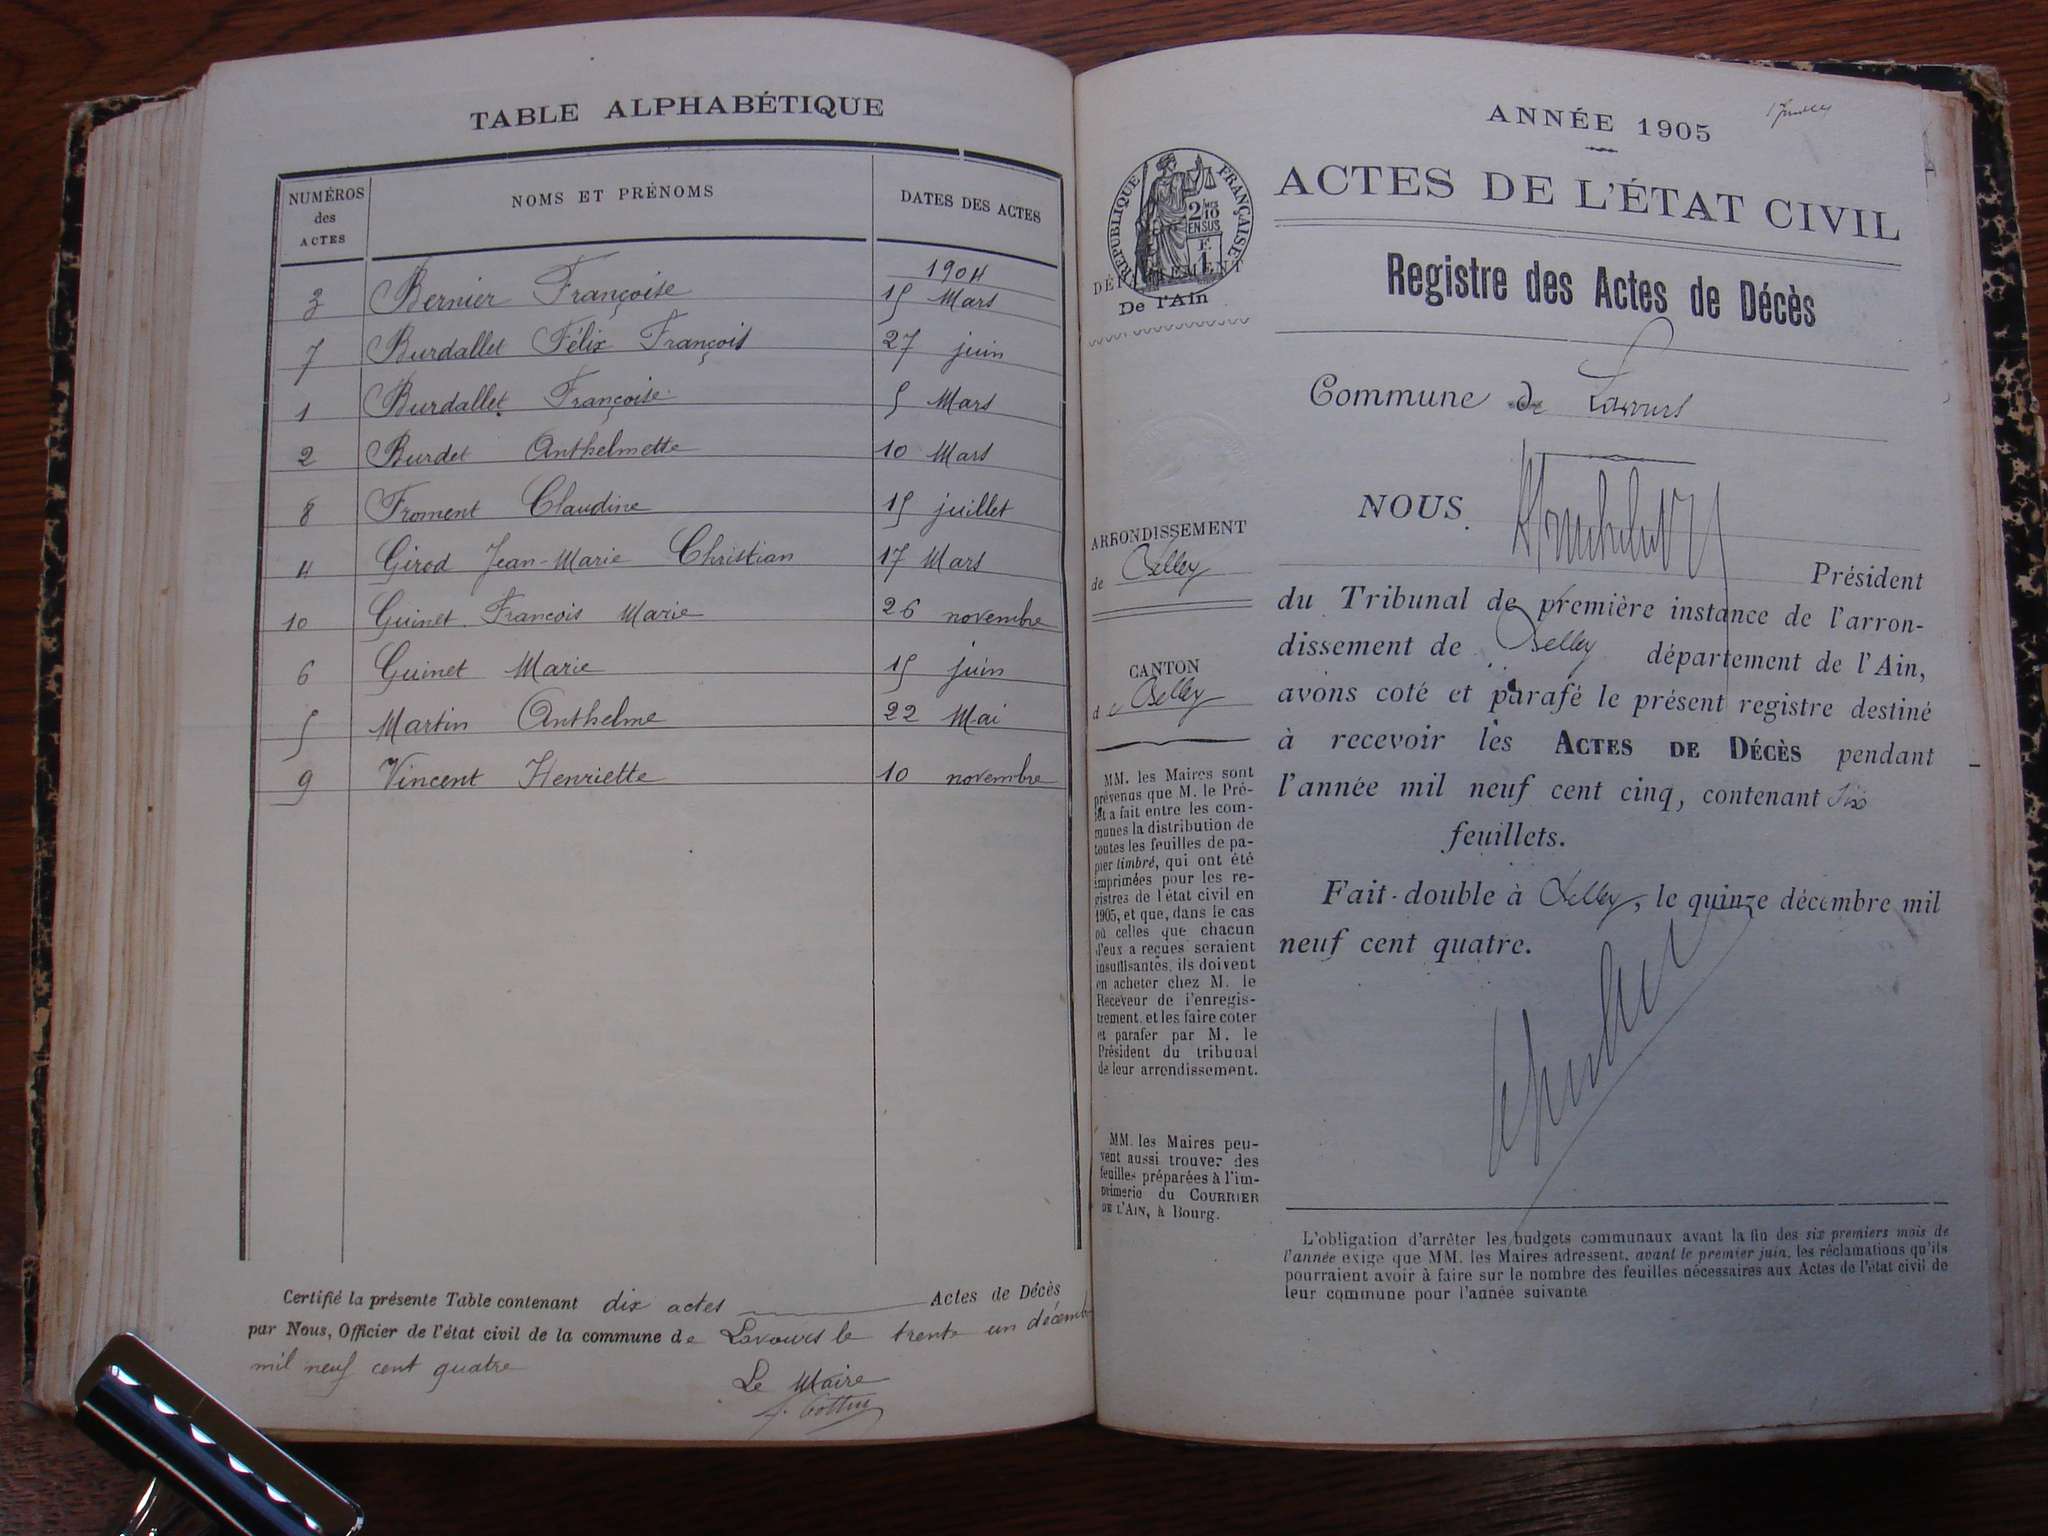 TABLE ALPHABÉTIQUE
NUMÉROS des ACTES NOMS ET PRÉNOMS DATES DES ACTES
1904
3 Bernier Françoise 15 Mars
7 Burdallet Félix François 27 juin
1 Burdallet Françoise 5 Mars
2 Burdet Anthelmette 10 Mars
8 Froment Claudine 15 juillet
4 Girod Jean-Marie Christian 17 Mars
10 Guinet François Marie 26 novembre
6 Guinet Marie 15 juin
5 Martin Anthelme 22 Mai
9 Vincent Henriette 10 novembre
Certifié la présente Table contenant dix actes Actes de Décès
par Nous, Officier de l'état civil de la commune de Lavours le trente un décembre
mil neuf cent quatre
Le Maire
ANNÉE 1905
ACTES DE L'ÉTAT CIVIL
RÉPUBLIQUE FRANÇAISE
2/10 EN SUS
DÉPARTEMENT
De l'Ain
Registre des Actes de Décès
Commune de Lavours
ARRONDISSEMENT
de Belley
CANTON
de Belley
MM. les Maires sont
prévenus que M. le Pré-
fet a fait entre les com-
munes la distribution de
toutes les feuilles de pa-
pier timbré, qui ont été
imprimées pour les re-
gistres de l'état civil en
1905, et que, dans le cas
où celles que chacun
d'eux a reçues seraient
insuffisantes, ils doivent
en acheter chez M. le
Receveur de l'enregis-
trement, et les faire coter
et parafer par M. le
Président du tribunal
de leur arrondissement.
MM. les Maires peu-
vent aussi trouver des
feuilles préparées à l'im-
primerie du COURRIER
DE L'AIN, à Bourg.
NOUS
Président
du Tribunal de première instance de l'arron-
dissement de Belley département de l'Ain,
avons coté et parafé le présent registre destiné
à recevoir les ACTES DE DÉCÈS pendant
l'année mil neuf cent cinq, contenant six
feuillets.
Fait double à Belley, le quinze décembre mil
neuf cent quatre.
L'obligation d'arrêter les budgets communaux avant la fin des six premiers mois de
l'année exige que MM. les Maires adressent, avant le premier juin, les réclamations qu'ils
pourraient avoir à faire sur le nombre des feuilles nécessaires aux Actes de l'état civil de
leur commune pour l'année suivante